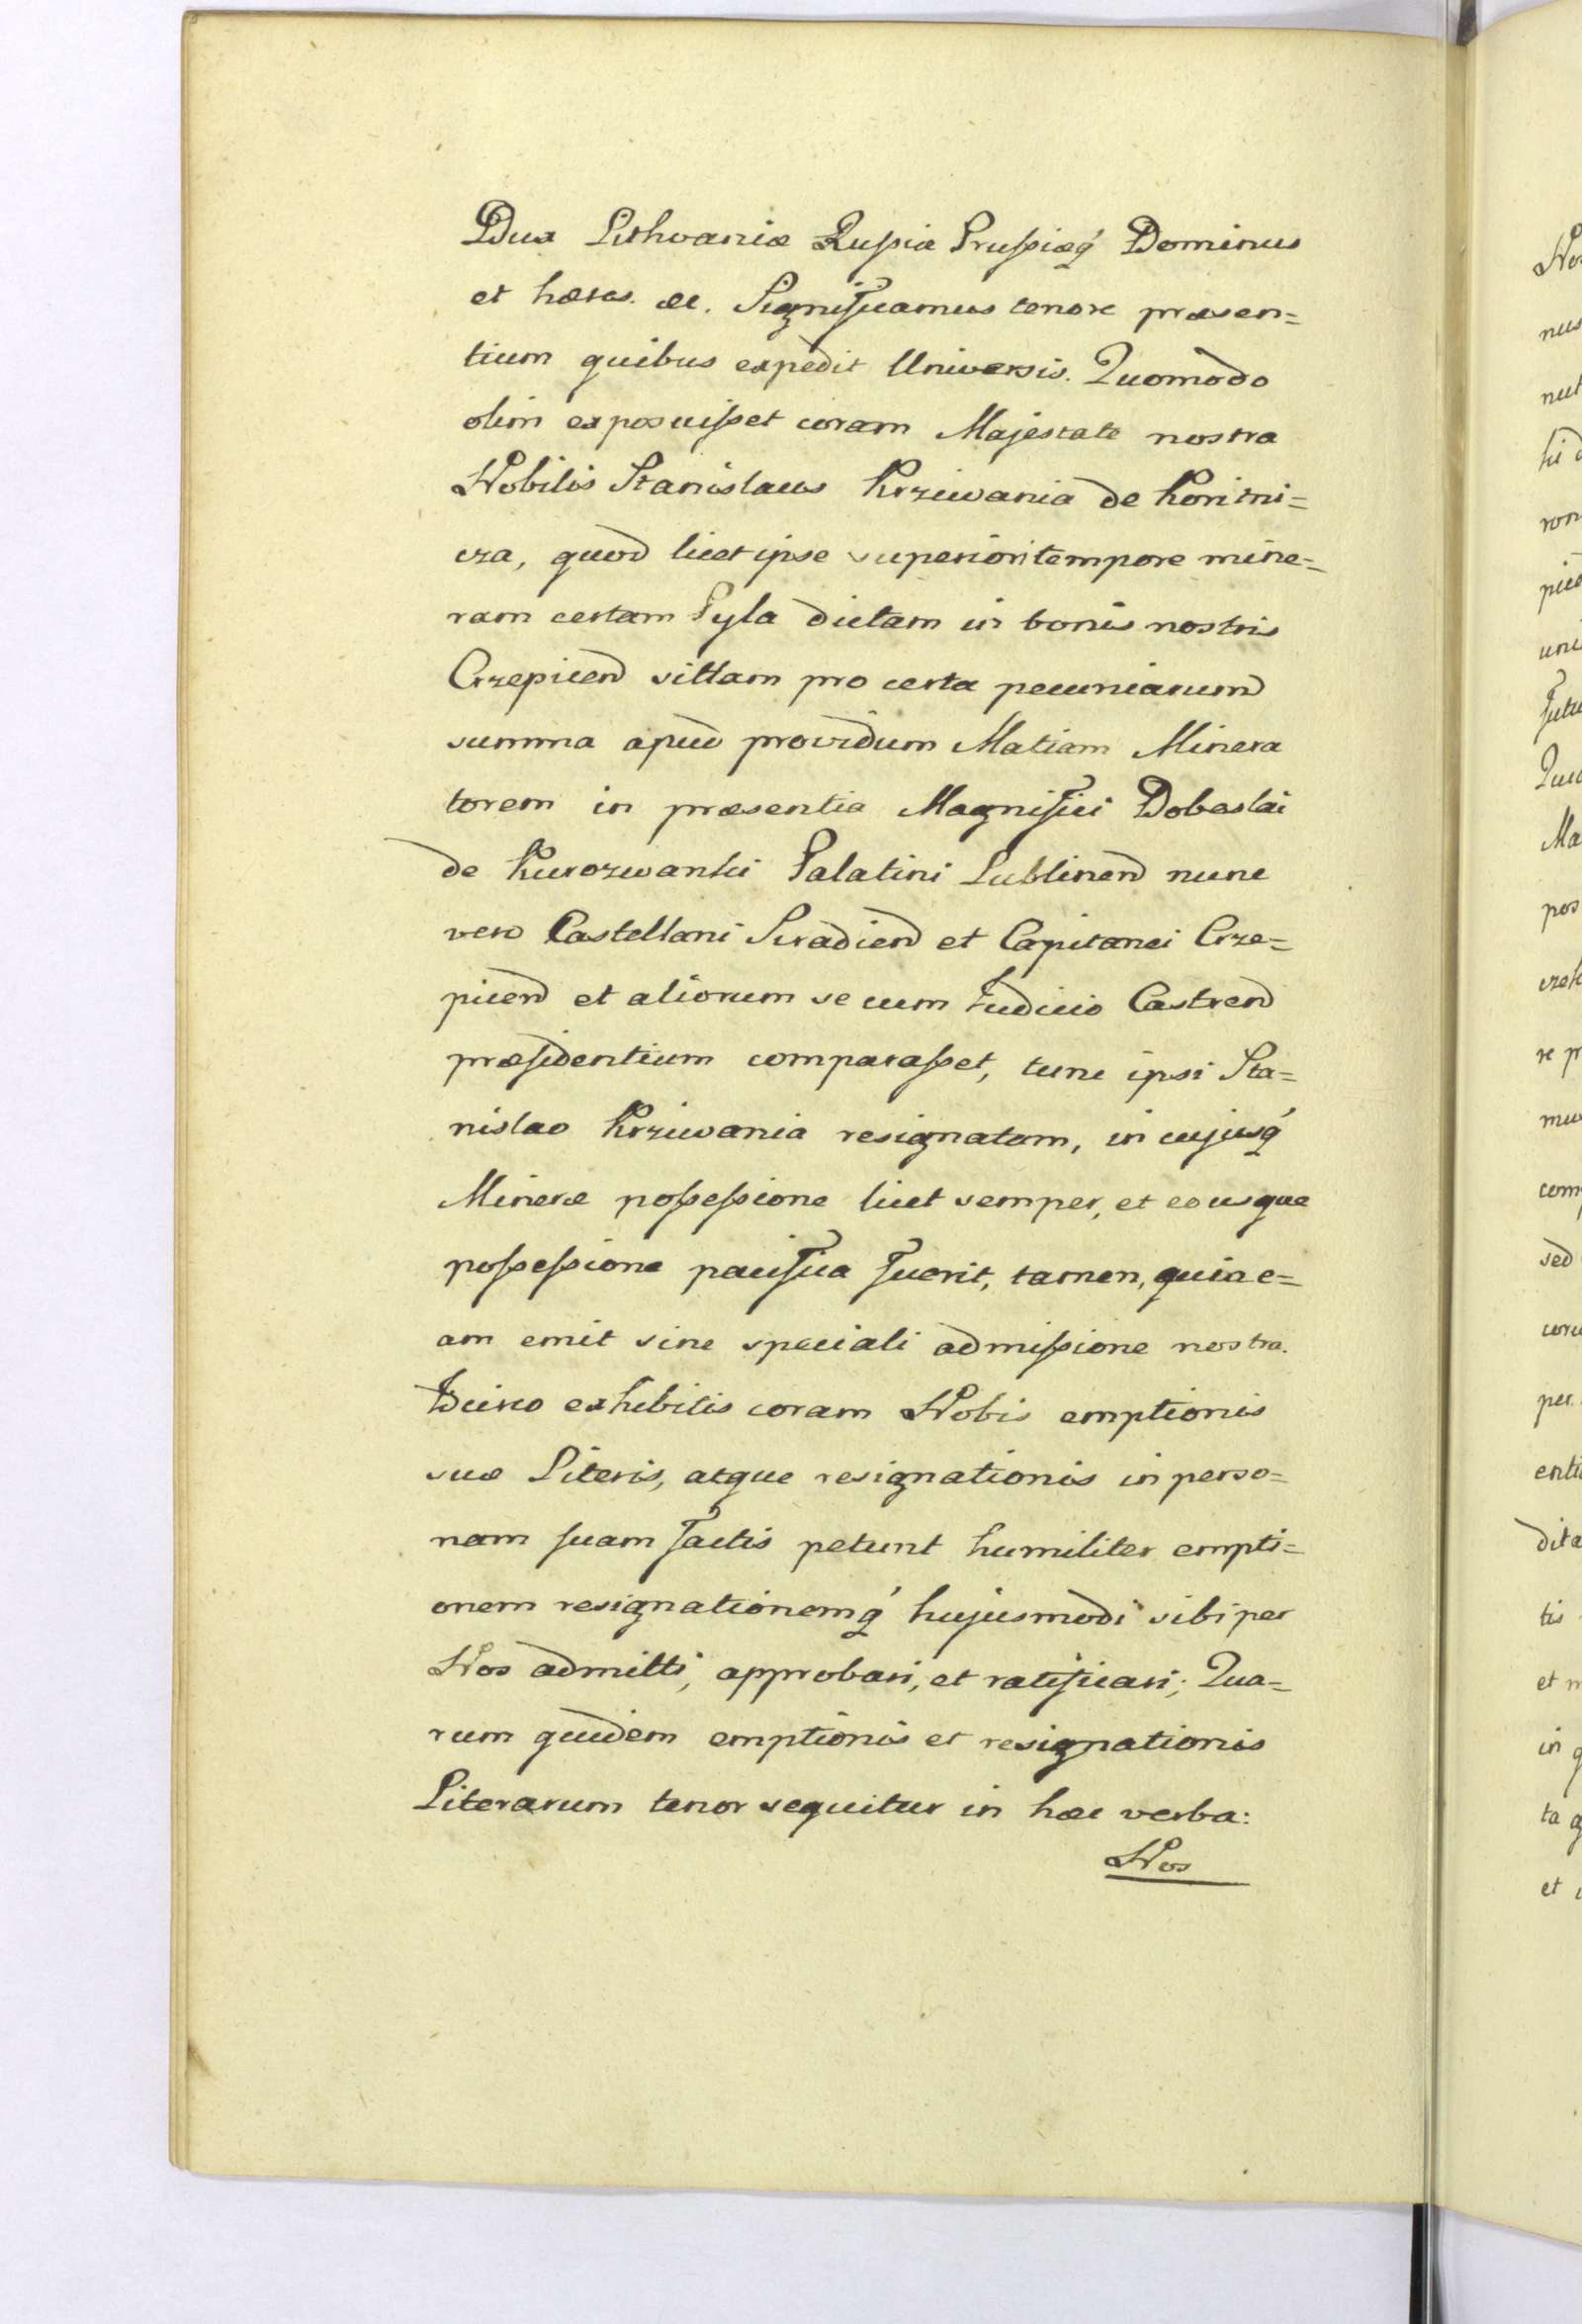 Dux Lithvaniæ Russiæ Prussiæq́ Dominus
et hæres. &c. Significamus tenore præsen=
tium quibus expedit Universis. Quomodo
olim exposuisset coram Majestate nostra
Nobilis Stanislaus Krziwania de Koritni=
cza, quod licet ipse superiori tempore mine=
ram certam Pyla dictam in bonis nostris
Crzepicen sittam pro certa pecuniarum
summa apud providum Matiam Minera
torem in præsentia Magnifici Dobeslai
de Kurozwanki Palatini Lublinen nunc
vero Castellani Siradien et Capitanei Crze=
picen et aliorum secum Iudicio Castren
præsidentium comparasset, tunc ipsi Sta=
nislao Krziwania resignatam, in cujusq́
Mineræ possessione licet semper, et eousque
possessione pacifica fuerit, tamen, quia e=
am emit sine speciali admissione nostra.
Idcirco exhibitis coram Nobis emptionis
suæ Literis, atque resignationis in perso=
nam suam factis petunt humiliter empti=
onem resignationemq́ hujusmodi sibi per
Nos admitti, approbari, et ratificari; Qua=
rum quidem emptionis et resignationis
Literarum tenor sequitur in hæc verba:
Nos